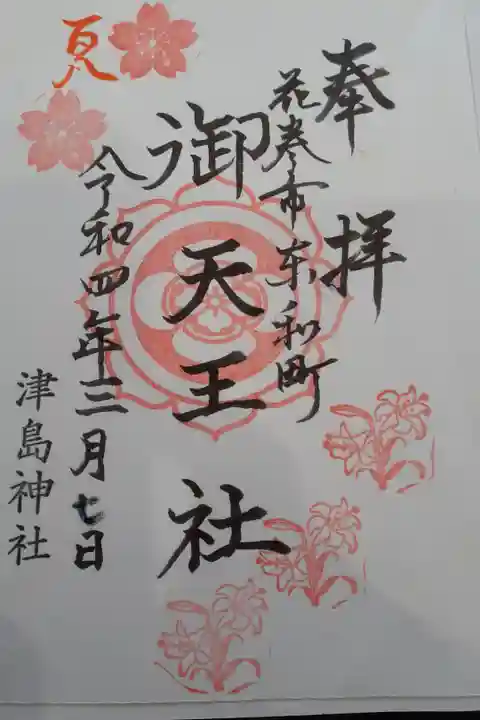 奉拝
花巻市東和町
御天王社
令和四年三月七日
津島神社